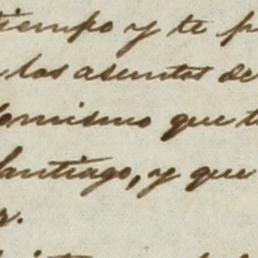 tiempo y te p
los asuntos de
lo mismo que t
Santiago, y que
r.